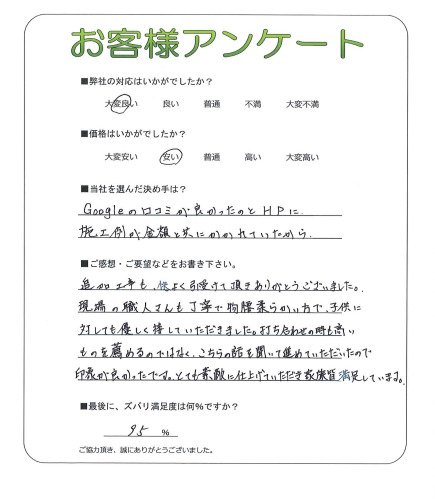 お客様アンケート
■弊社の対応はいかがでしたか？
大変良い 良い 普通 不満 大変不満
■価格はいかがでしたか？
大変安い 安い 普通 高い 大変高い
■当社を選んだ決め手は？
Googleの口コミが良かったのとHPに
施工例が金額と共にかかれていたから.
■ご感想・ご要望などをお書き下さい。
追加工事も、快よく引受けて頂きありがとうございました。
現場の職人さんも丁寧で物腰柔らかい方で、子供に
対しても優しく接していただきました。打ち合わせの時も高い
ものを薦めるのではなく、こちらの話を聞いて進めていただいたので
印象が良かったです。とても素敵に仕上げていただき家族皆満足しています。
■最後に、ズバリ満足度は何%ですか？
95 %
ご協力頂き、誠にありがとうございました。